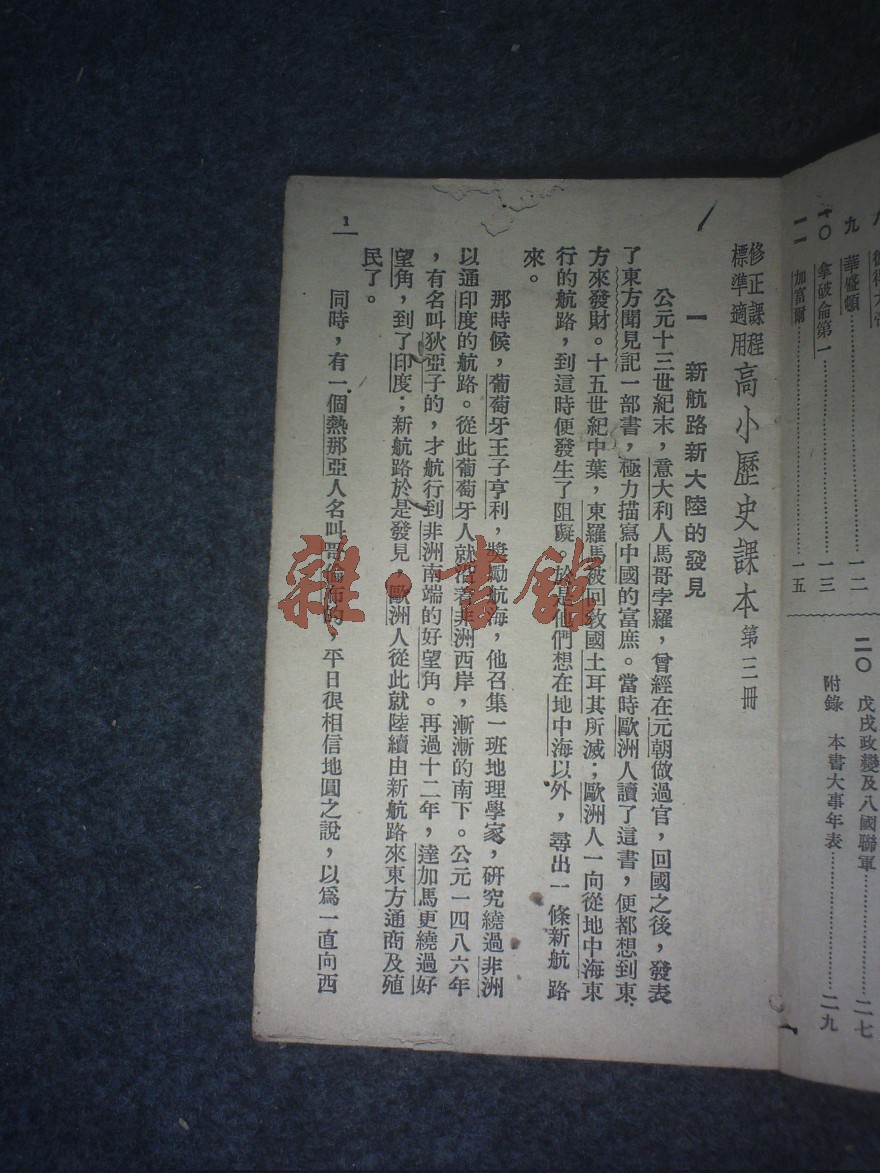 九 華盛頓 一二
一〇 拿破侖第一 一三
一一 加富爾 一五
二〇 戊戌政變及八國聯軍 二七
附錄 本書大事年表 二九
修正課程
標準適用
高小歷史課本第三冊
一 新航路新大陸的發見
公元十三世紀末，意大利人馬哥孛羅，曾經在元朝做過官，回國之後，發表
了東方聞見記一部書，極力描寫中國的富庶。當時歐洲人讀了這書，便都想到東
方來發財。十五世紀中葉，東羅馬被回教國土耳其所滅；歐洲人一向從地中海東
行的航路，到這時便發生了阻礙。於是他們想在地中海以外，尋出一條新航路
來。
那時候，葡萄牙王子亨利，獎勵航海，他召集一班地理學家，研究繞過非洲
以通印度的航路。從此葡萄牙人就沿着非洲西岸，漸漸的南下。公元一四八六年
，有名叫狄亞子的，才航行到非洲南端的好望角。再過十二年，達加馬更繞過好
望角，到了印度；新航路於是發見，歐洲人從此就陸續由新航路來東方通商及殖
民了。
同時，有一個熱那亞人名叫哥倫布的，平日很相信地圓之說，以為一直向西
1
雜·書館